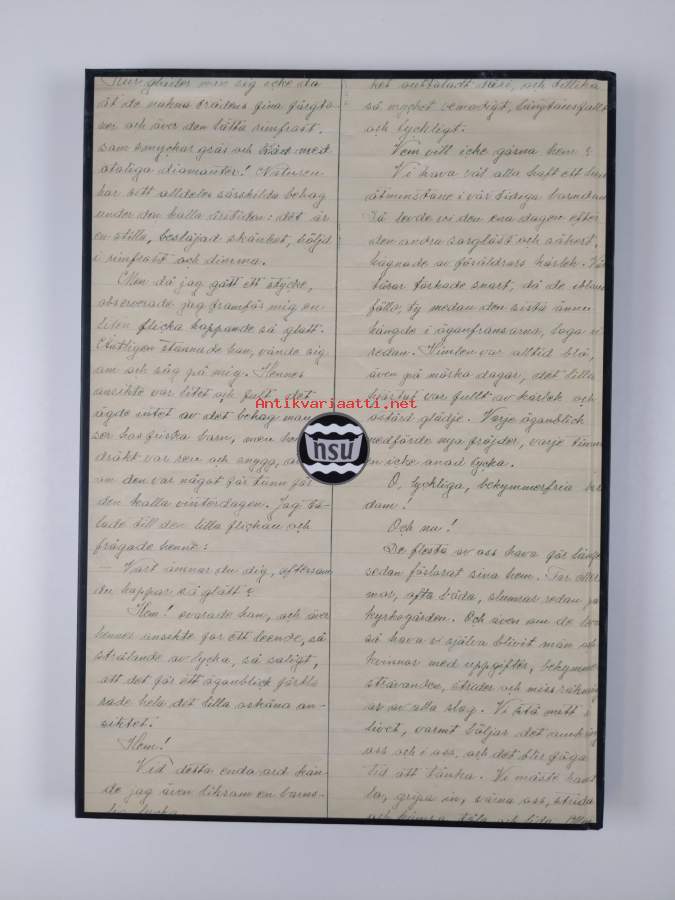 Hur gläder man sig icke då
åt de nakna trädens fina färgto-
ner och över den lätta rimfrost,
som smyckar gräs och
otaliga diamanter! Naturen
har ett alldeles särskilda behag
under den kalla årstiden: det är
en stilla, beslöjad skönhet, höljd
i rimfrost och dimma.
Men då jag gått ett stycke,
observerade jag framför mig en
liten flicka hoppande så glatt.
Äntligen stannade hon, vände sig
om och såg på mig. Hennes
ansikte var litet och fult, det
ägde intet av det behag man
ser hos friska barn, men
dräkt var ren och snygg,
om den var något för tunn för
den kalla vinterdagen. Jag ta-
lade till den lilla flickan och
frågade henne:
– Vart ämnar du dig, eftersom
du hoppar så glatt?
– Hem! svarade hon, och över
hennes ansikte for ett leende, så
strålande av lycka, så saligt,
att det för ett ögonblick förkla-
rade hela det lilla osköna an-
siktet.
Hem!
Vid detta enda ord kän-
de jag även liksom en barns-
ket outtaladt och tillika
så mycket vemodigt, längtansfullt
och lyckligt.
Vem vill icke gärna hem?
Vi hava väl alla haft ett
åtminstone i vår tidiga barndom
Då levde vi den ena dagen efter
den andra sorglöst och säkert,
hägnade av föräldrars kärlek.
tårar torkade snart, då de
föllo, ty medan den sista ännu
hängde i ögonfransarna, logo vi
redan. Himlen var alltid blå,
även på mörka dagar, det lilla
hjärtat var fullt av kärlek och
ostörd glädje. Varje ögonblick
medförde nya fröjder, varje timme
en icke anad lycka.
O, lyckliga, bekymmerfria
dom!
Och nu!
De flesta av oss hava för länge
sedan förlorat sina hem. Far eller
mor, ofta båda, slumra redan på
kyrkogården. Och även om de
så hava vi själva blivit män och
kvinnor med uppgifter, bekymmer
strävanden, strider och missräkning
ar av alla slag. Vi stå mitt i
livet, varmt böljar det omkring
oss och i oss, och det blir föga
tid att tänka. Vi måste hand
la, gripa in, värna oss, strida
Antikvariaatti.net
nsu